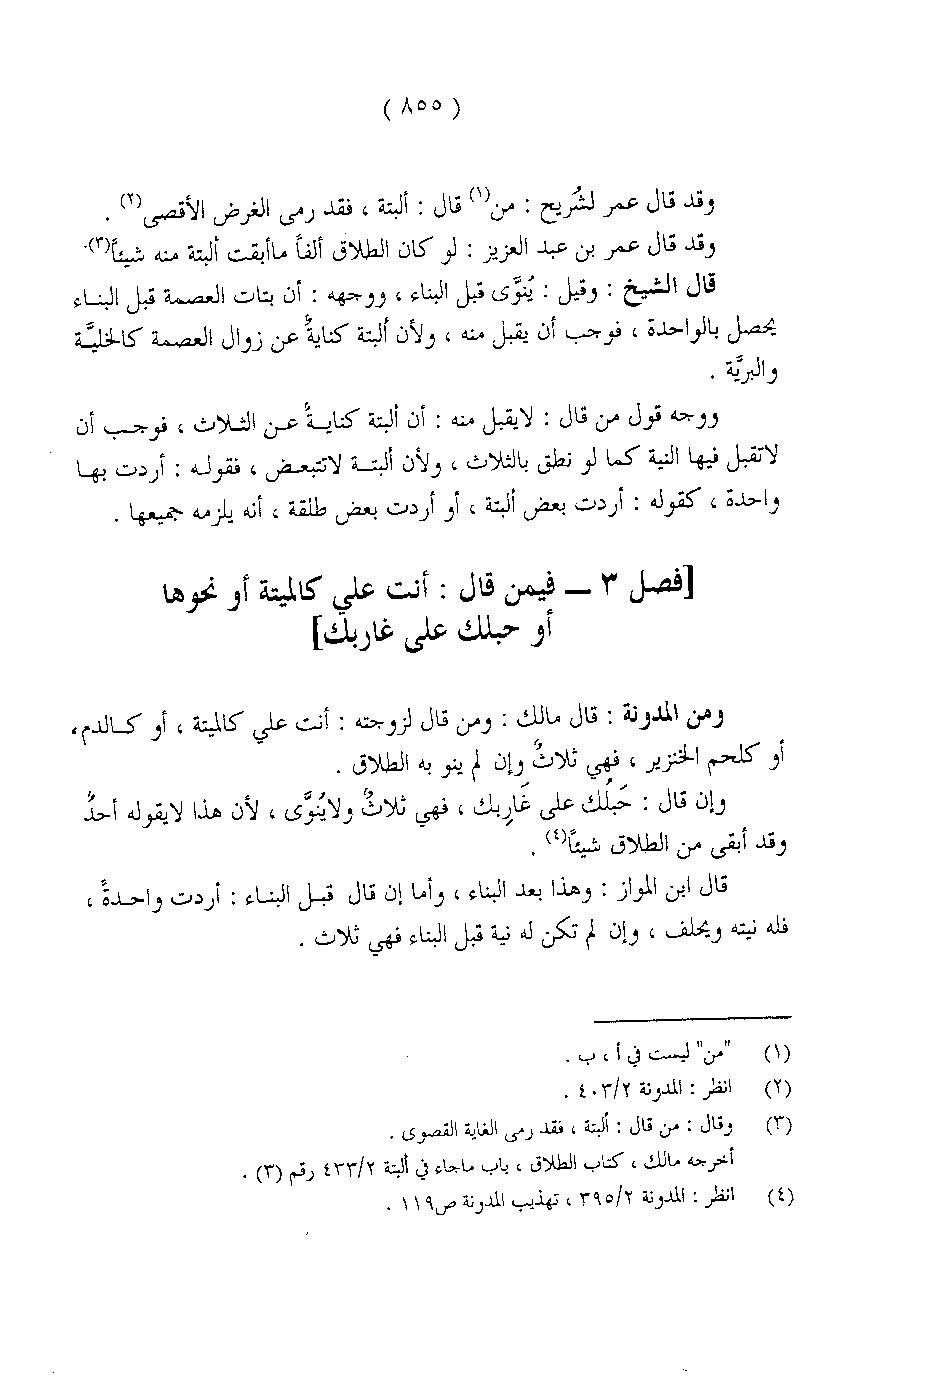 ( ٨٥٥ )
وقد قال عمر لشُريح : من(١) قال : ألبتة ، فقد رمى الغرض الأقصى(٢) .
وقد قال عمر بن عبد العزيز : لو كان الطلاق ألفاً ماأبقت ألبتة منه شيئاً(٣).
قال الشيخ : وقيل : يُنوَّى قبل البناء ، ووجهه : أن بتات العصمة قبل البناء
يحصل بالواحدة ، فوجب أن يقبل منه ، ولأن ألبتة كنايةٌ عن زوال العصمة كالخليَّة
والبريَّة .
ووجه قول من قال : لايقبل منه : أن ألبتة كنايةٌ عن الثلاث ، فوجب أن
لاتقبل فيها النية كما لو نطق بالثلاث ، ولأن ألبتة لاتتبعض ، فقوله : أردت بها
واحدة ، كقوله : أردت بعض ألبتة ، أو أردت بعض طلقة ، أنه يلزمه جميعها .
[فصل ٣ ــ فيمن قال : أنت علي كالميتة أو نحوها
أو حبلك على غاربك]
ومن المدونة : قال مالك : ومن قال لزوجته : أنت علي كالميتة ، أو كالدم،
أو كلحم الخنزير ، فهي ثلاثٌ وإن لم ينو به الطلاق .
وإن قال : حَبلُك على غَارِبك ، فهي ثلاثٌ ولايُنوَّى ، لأن هذا لايقوله أحدٌ
وقد أبقى من الطلاق شيئاً(٤) .
قال ابن المواز : وهذا بعد البناء ، وأما إن قال قبل البناء : أردت واحدةً ،
فله نيته ويحلف ، وإن لم تكن له نية قبل البناء فهي ثلاث .
(١) "من" ليست في أ ، ب .
(٢) انظر : المدونة ٤٠٣/٢ .
(٣) وقال : من قال : ألبتة ، فقد رمى الغاية القصوى .
أخرجه مالك ، كتاب الطلاق ، باب ماجاء في ألبتة ٤٣٣/٢ رقم (٣) .
(٤) انظر : المدونة ٣٩٥/٢ ، تهذيب المدونة ص١١٩ .